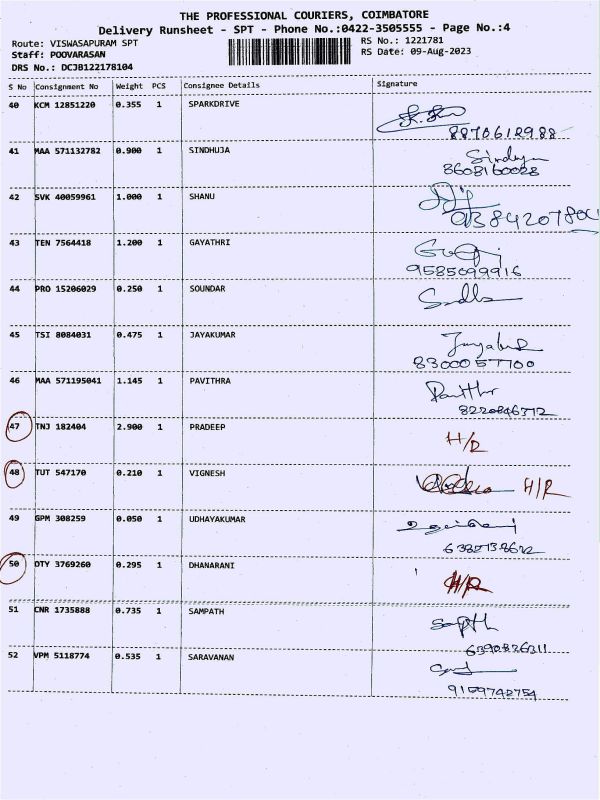 THE PROFESSIONAL COURIERS, COIMBATORE
Delivery Runsheet - SPT - Phone No.:0422-3505555 - Page No.:4
Route: VISWASAPURAM SPT RS No.: 1221781
Staff: POOVARASAN RS Date: 09-Aug-2023
DRS No.: DCJB122178104
S No Consignment No Weight PCS Consignee Details Signature
40 KCM 12851220 0.355 1 SPARKDRIVE
8870612988
41 MAA 571132782 0.900 1 SINDHUJA Sindhuja
8608160028
42 SVK 40059961 1.000 1 SHANU
43 TEN 7564418 1.200 1 GAYATHRI
9585099916
44 PRO 15206029 0.250 1 SOUNDAR
45 TSI 8084031 0.475 1 JAYAKUMAR
8300057700
46 MAA 571195041 1.145 1 PAVITHRA Pavithra
8220846772
47 TNJ 182404 2.900 1 PRADEEP H/R
48 TUT 547170 0.210 1 VIGNESH H/R
49 GPM 308259 0.050 1 UDHAYAKUMAR
50 OTY 3769260 0.295 1 DHANARANI H/R
51 CNR 1735888 0.735 1 SAMPATH
6390826311
52 VPM 5118774 0.535 1 SARAVANAN
9159742754